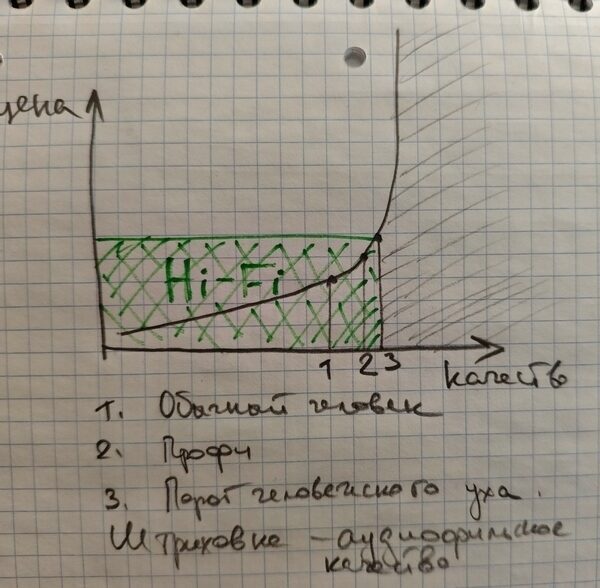 цена
Hi-Fi
1 2 3
качество
1. Обычный человек
2. Профи
3. Порог человеческого уха.
Штриховка - аудиофильское
качество